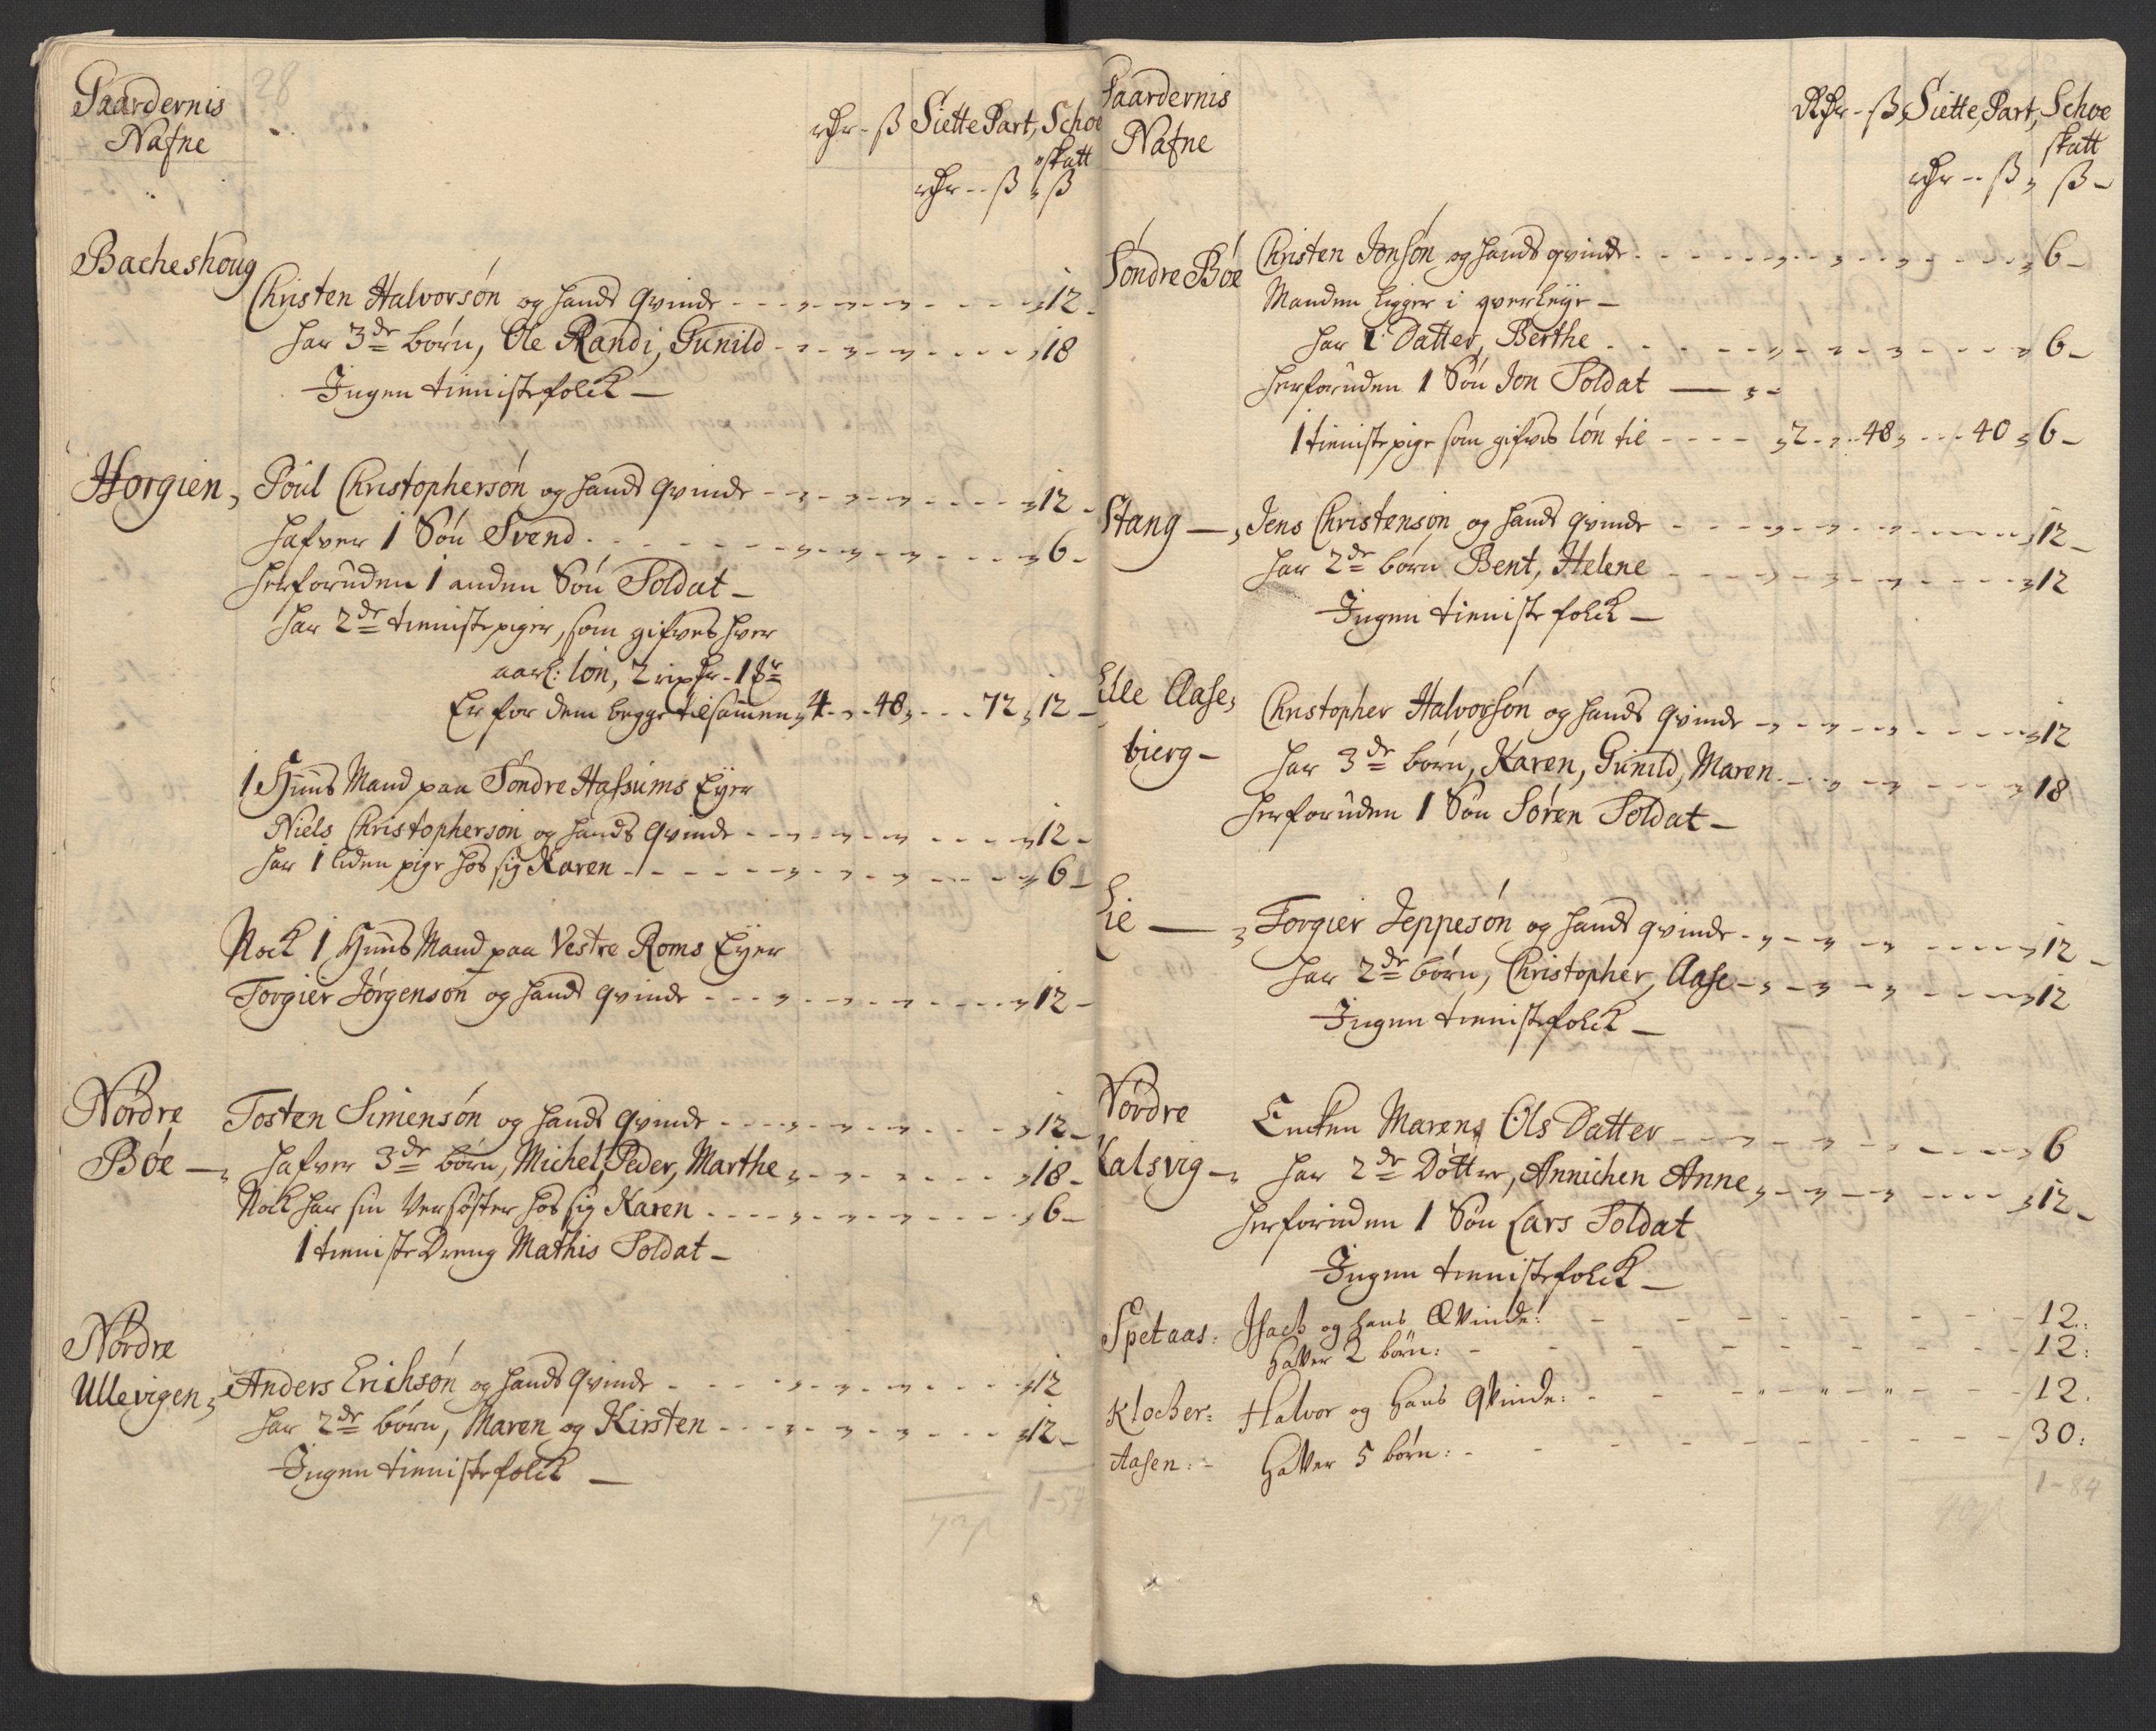 Gaardernis
Nafne
28
rdr - ß Siette Part, Schoe
skatt
rdr -- ß „ ß
Bacheshoug
Christen Halvorsón og hands qvinde 12
har 3de børn, Ole Randi, Gunild 18
Ingen tienistefolck
Horgien, Póul Christophersón og hands qvinde 12
hafver 1 Són Svend 6
herforuden 1 anden Són Soldat
har 2de tienistepiger, som gifves hver
aarl: lón, 2 rixdr - 1 ß
Er for dem begge tilsamen 4 48 72 12
1 Huus Mand paa Sóndre Hafsums Eyer
Niels Christophersón og hands qvinde 12
har 1 liden pige hos sig Karen 6
Nock 1 Huus Mand paa Vestre Roms Eyer
Torgier Jórgensón og hands qvinde 12
Nórdre Tosten Simensón og hands qvinde 12
Bóe hafver 3de børn, Michel, Peder, Marthe 18
Nock har sin Versøster hos sig Karen 6
1 tieniste Dreng Mathis Soldat
Nórdre
Ullevigen, Anders Erichsón og hands qvinde 12
har 2de børn, Maren og Kirsten 12
Ingen tienistefolck
1-54
Gaardernis
Nafne
Rdr - ß, Siette, Part, Schoe
skatt
rdr -- ß, ß
Sóndre Bóe Christen Jonsón og hands qvinde 6
Manden ligger i qverleye
har 1 Datter, Berthe 6
herforuden 1 Són Jon Soldat
1 tienistepige som gifves lón til 2 48 40 6
Stang, Jens Christensón og hands qvinde 12
har 2de børn Bent, Helene 12
Ingen tienistefolck
Lille Aase, Christopher Halvorsón og hands qvinde 12
bierg har 3de børn, Karen, Gunild, Maren 18
herforuden 1 Són Sóren Soldat
Lie, Torgier Jeppesón og hands qvinde 12
har 2de børn, Christopher, Aase 12
Ingen tienistefolck
Nórdre Encken Maren Ols Datter 6
Kalsvig har 2de Dóttre, Annichen Anne 12
herforuden 1 Són Lars Soldat
Ingen tienistefolck
Spetaas: Isach og hans Qvinde: 12
haver 2 börn: 12
Klocher: Halvor og hans Qvinde: 12
Aasen: haver 5 börn: 30
1-84